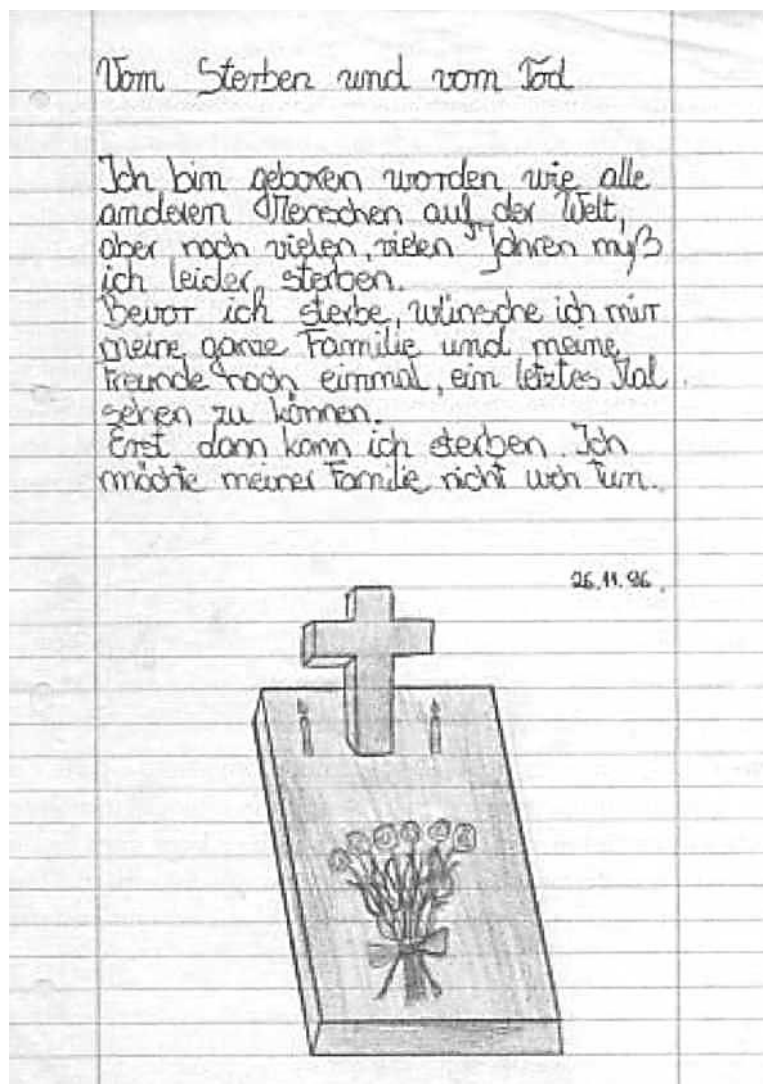 Vom Sterben und vom Tod
Ich bin geboren worden wie alle
anderen Menschen auf der Welt,
aber nach vielen, vielen Jahren muß
ich leider sterben.
Bevor ich sterbe, wünsche ich mir
meine ganze Familie und meine
Freunde noch einmal, ein letztes Mal
sehen zu können.
Erst dann kann ich sterben. Ich
möchte meiner Familie nicht weh tun.
26.11.96.